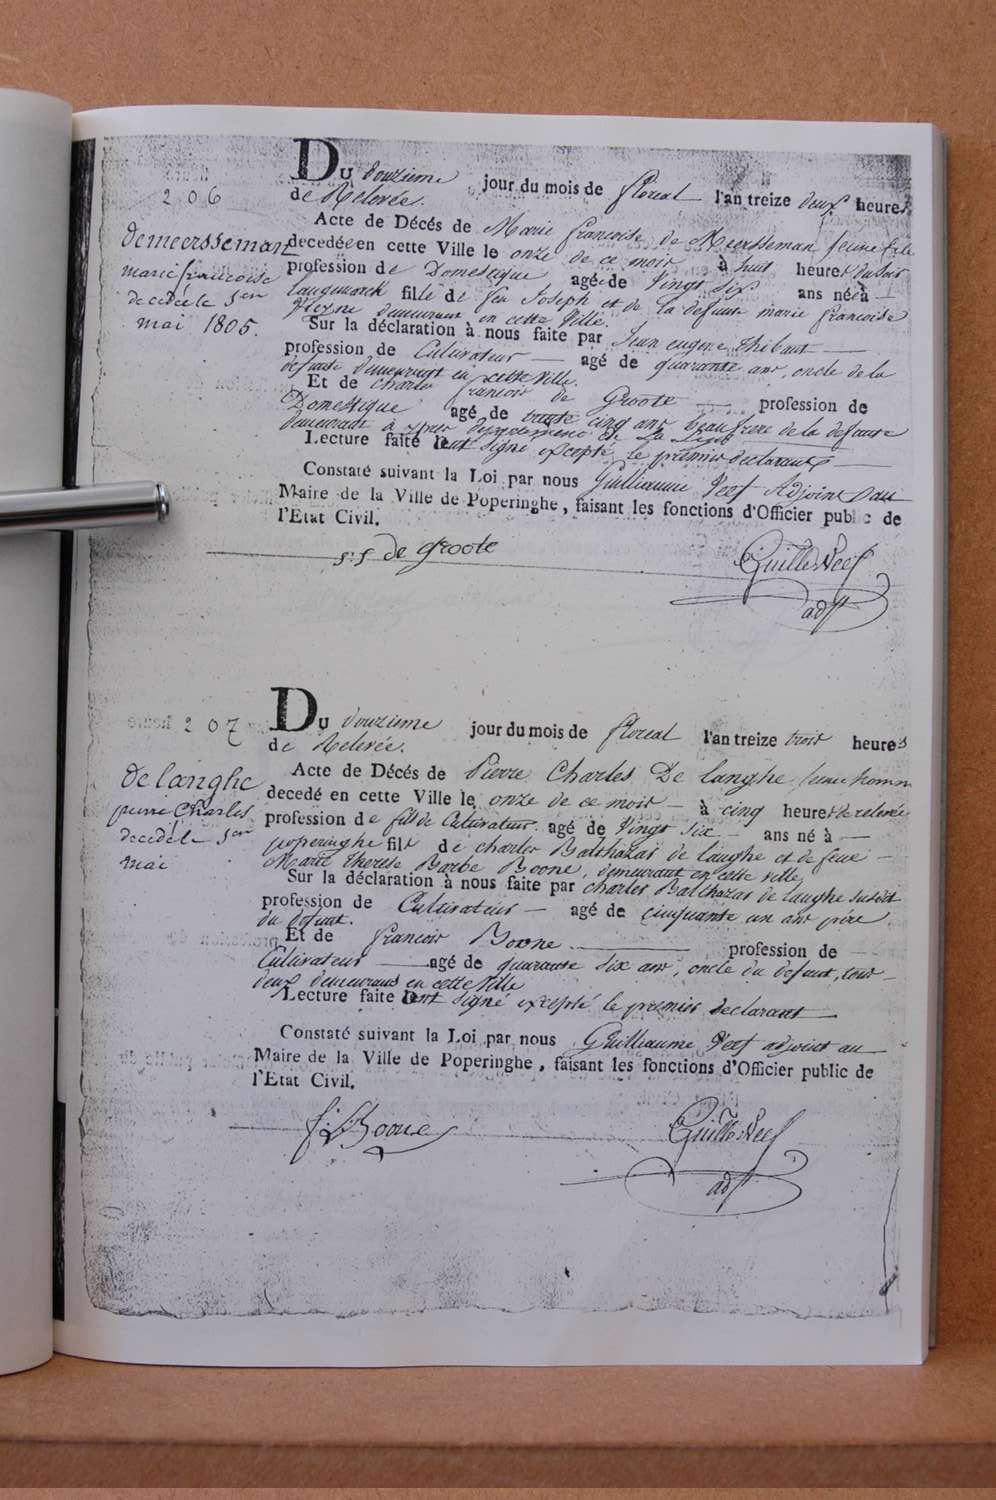 206
Du douzieme jour du mois de floreal l'an treize deux heures
de Relevée.
Acte de Décés de Marie françoise de Meersseman jeune fille
demeersseman
decedée en cette Ville le onze de ce mois à huit heures du soir
marie francoise
profession de Domestique agée de Vingt Six ans né à
decedé le 1er
Langemarck fille de feu Joseph et de la defunte marie francoise
mai 1805.
demeurant en cette Ville.
Sur la déclaration à nous faite par Jean eugene Thibaut
profession de Cultivateur agé de quarante ans, oncle de la
defunte demeurant en cette ville.
Et de charles francois de Groote profession de
Domestique agé de trente cinq ans beaufrere de la defunte
demeurant à departement de la Lijs
Lecture faite ont signé excepté le premier declarant
Constaté suivant la Loi par nous Guilliaume Neef Adjoint au
Maire de la Ville de Poperinghe, faisant les fonctions d'Officier public de
l'Etat Civil.
de Groote
Guille Neef
adj
207
Du douzieme jour du mois de floreal l'an treize trois heures
de Relevée.
de langhe
Acte de Décés de Pierre Charles De langhe jeune homm
pierre Charles
decedé en cette Ville le onze de ce mois à cinq heures de relevée
decedé le 1er
profession de fils de Cultivateur agé de Vingt Six ans né à
mai
poperinghe fils de charles Balthazar de langhe et de feue
Marie Therese Barbe Boone, demeurant en cette ville
Sur la déclaration à nous faite par charles Balthazar de langhe susdit
profession de Cultivateur agé de cinquante un ans père
du defunt.
Et de francois Boone profession de
Cultivateur agé de quarante six ans, oncle du defunt, tous
deux demeurans en cette Ville
Lecture faite ont signé excepté le premier declarant
Constaté suivant la Loi par nous Guilliaume Neef adjoint au
Maire de la Ville de Poperinghe, faisant les fonctions d'Officier public de
l'Etat Civil.
f: Boone
Guille Neef
adj